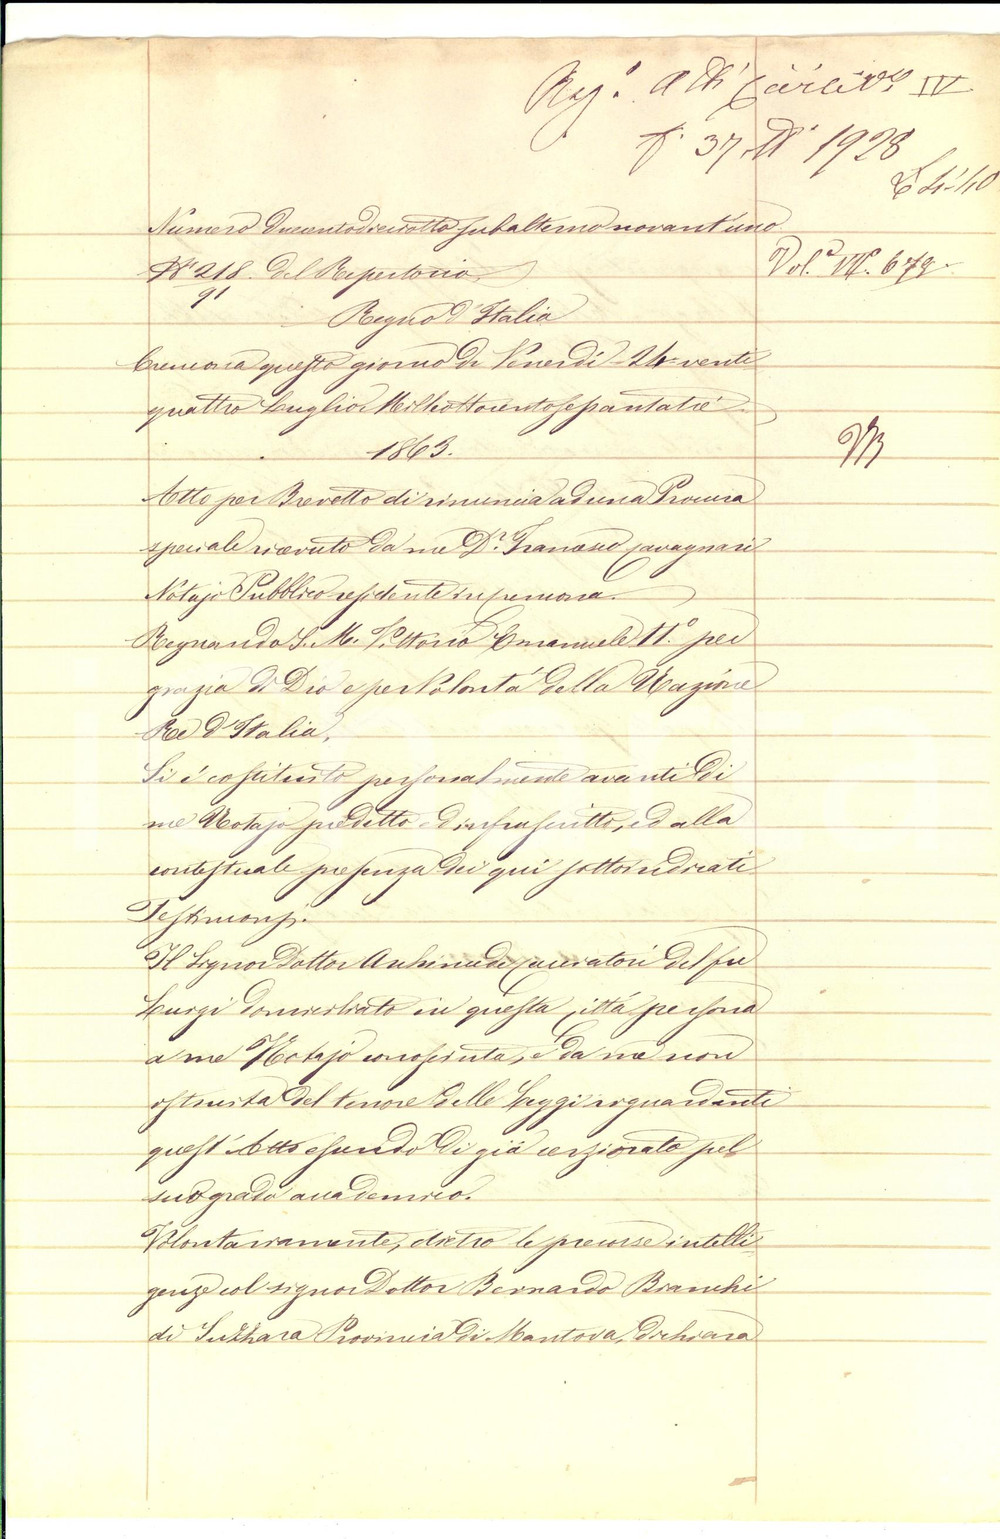 Reg.o Atti Civili Vol. IV
f. 37 N. 1928
£ 4.40
Numero Duecentodieciotto subalterno novant'uno
Vol.e VII. 679
N.o 218/91 del Repertorio
Regno d'Italia
Cremona questo giorno di Venerdì 24 venti
quattro Luglio Milleottocentosessantatrè
1863.
Atto per Brevetto di rinuncia ad una Procura
speciale ricevuto da me D.r Francesco Cavagnari
Notajo Pubblico residente in Cremona.
Regnando S. M. Vittorio Emanuele II.o per
grazia di Dio e per Volontà della Nazione
Re d'Italia.
Si è costituito personalmente avanti di
me Notajo predetto ed infrascritto, ed alla
contestuale presenza dei qui sottoindicati
Testimonj.
Il Signor Dottor Archimede del fu
Luigi domiciliato in questa Città persona
a me Notajo conosciuta, e da me non
istruita del tenore delle Leggi riguardanti
quest'Atto essendo di già cerziorato pel
suo grado accademico.
Volontariamente, dietro le precorse intelli
genze col signor Dottor Bernardo Bianchi
di Suzzara Provincia di Mantova, dichiara